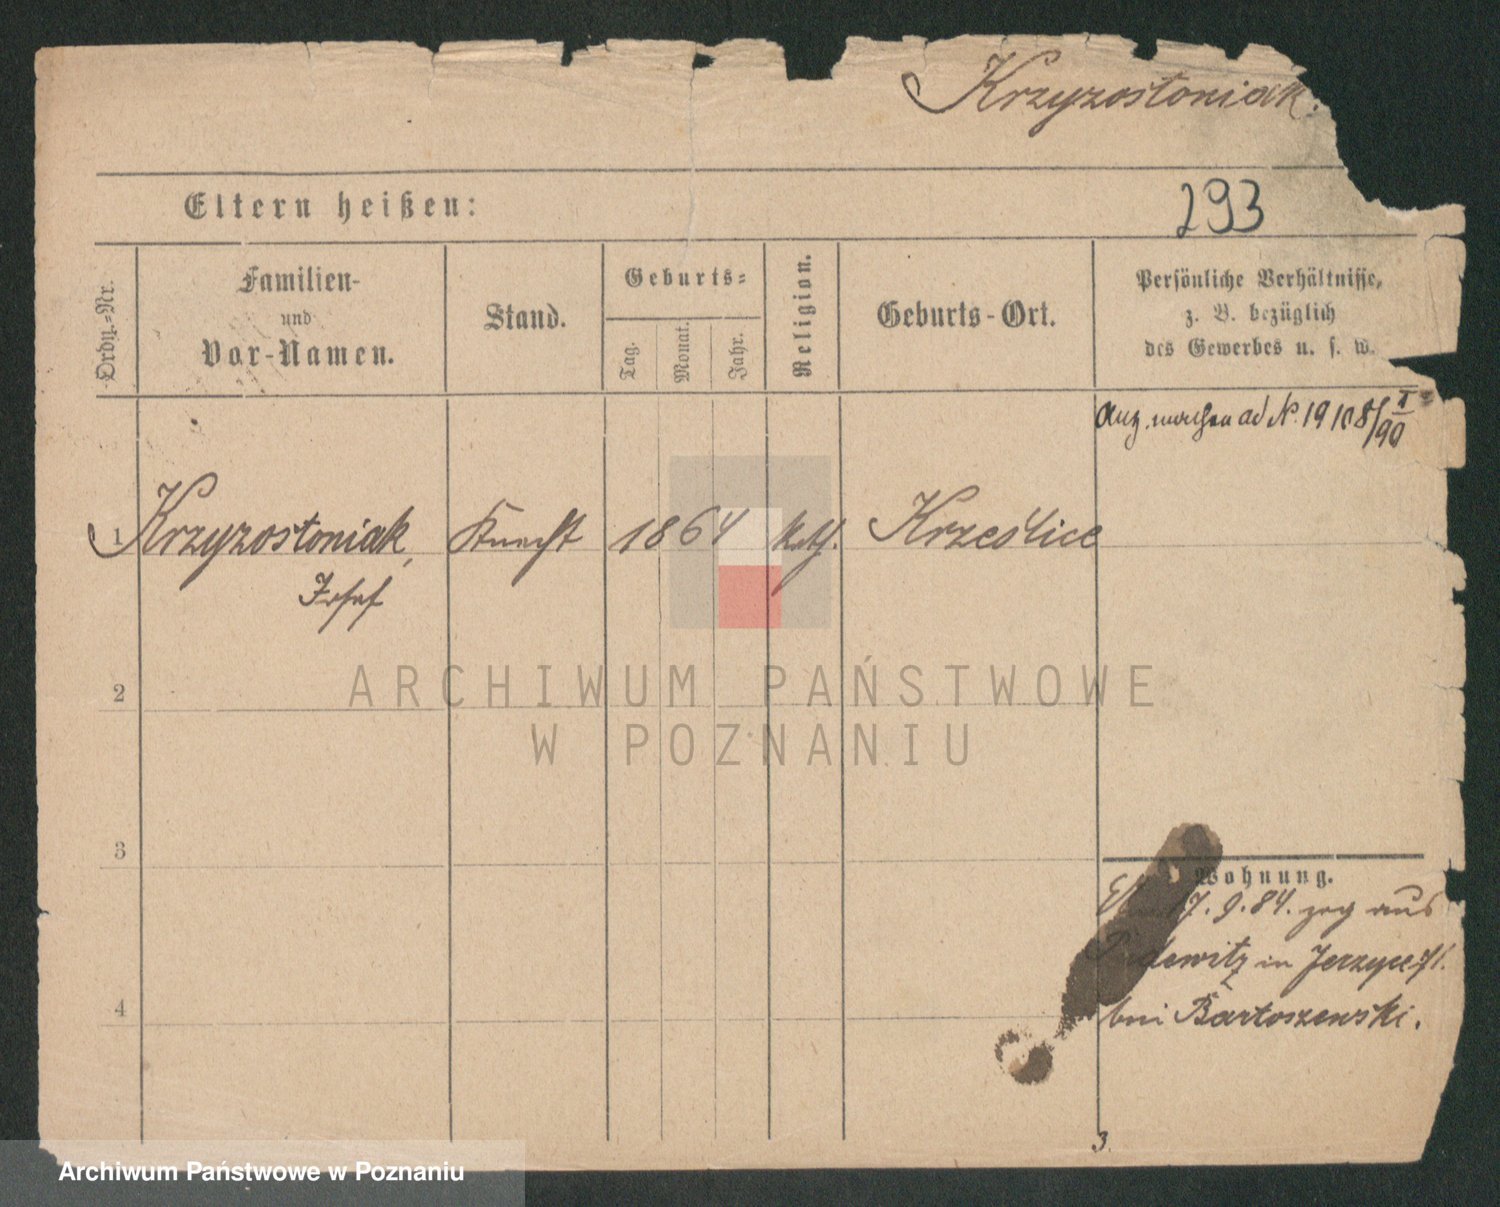 Krzyzostoniak.
Eltern heißen:
293
Ordn.-Nr.
Familien-
und
Vor-Namen.
Stand.
Geburts-
Tag.
Monat.
Jahr.
Religion.
Geburts-Ort.
Persönliche Verhältnisse,
z. B. bezüglich
des Gewerbes u. s. w.
ad N. 19108/I 90
1 Krzyzostoniak, Knecht 1864 kath. Krześlice
Josef
2
3
4
Wohnung.
17. 9. 84. zog aus
Pudewitz in Jerzyce 71.
bei Bartoszewski.
3.
ARCHIWUM PAŃSTWOWE
W POZNANIU
Archiwum Państwowe w Poznaniu